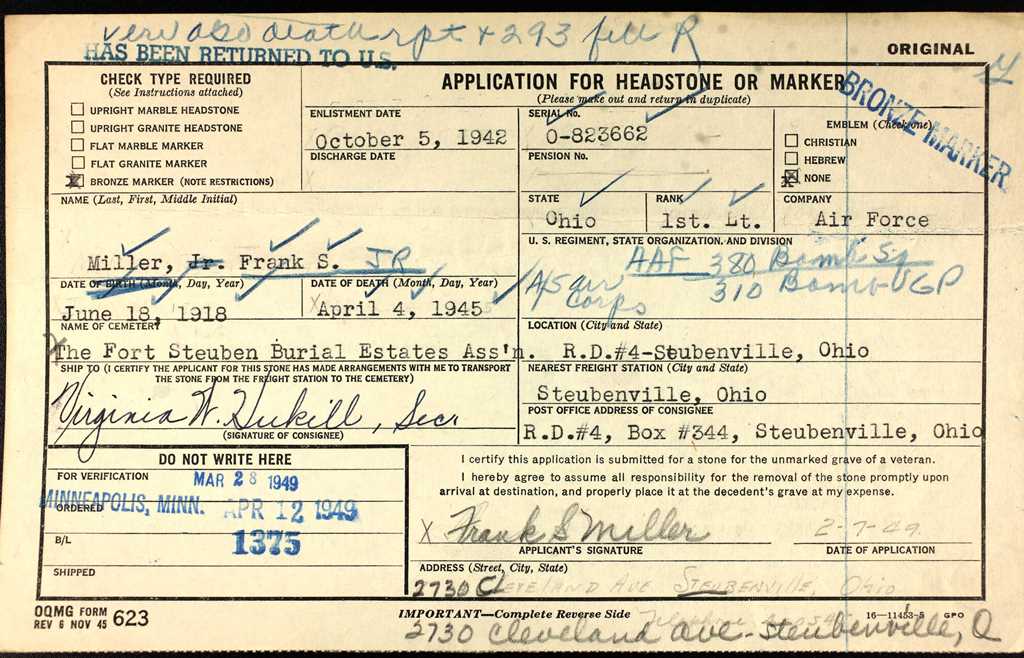 veri abo death rpt + 293 file R
HAS BEEN RETURNED TO U.S.
ORIGINAL
CHECK TYPE REQUIRED
(See Instructions attached)
UPRIGHT MARBLE HEADSTONE
UPRIGHT GRANITE HEADSTONE
FLAT MARBLE MARKER
FLAT GRANITE MARKER
X BRONZE MARKER (NOTE RESTRICTIONS)
APPLICATION FOR HEADSTONE OR MARKER
(Please make out and return in duplicate)
ENLISTMENT DATE
October 5, 1942
DISCHARGE DATE
SERIAL No.
O-823662
PENSION No.
EMBLEM (Check one)
CHRISTIAN
HEBREW
X NONE
BRONZE MARKER
NAME (Last, First, Middle Initial)
Miller, Jr. Frank S. JR
STATE
Ohio
RANK
1st. Lt.
COMPANY
Air Force
U. S. REGIMENT, STATE ORGANIZATION, AND DIVISION
AAF 380 Bomb Sq
A/S air Corps
310 Bomb GP
DATE OF BIRTH (Month, Day, Year)
June 18, 1918
DATE OF DEATH (Month, Day, Year)
April 4, 1945
NAME OF CEMETERY
The Fort Steuben Burial Estates Ass'n.
LOCATION (City and State)
R.D.#4-Steubenville, Ohio
SHIP TO (I CERTIFY THE APPLICANT FOR THIS STONE HAS MADE ARRANGEMENTS WITH ME TO TRANSPORT
THE STONE FROM THE FREIGHT STATION TO THE CEMETERY)
Virginia W. Hukill, Secr
(SIGNATURE OF CONSIGNEE)
NEAREST FREIGHT STATION (City and State)
Steubenville, Ohio
POST OFFICE ADDRESS OF CONSIGNEE
R.D.#4, Box #344, Steubenville, Ohio
DO NOT WRITE HERE
FOR VERIFICATION
MAR 28 1949
ORDERED
MINNEAPOLIS, MINN. APR 12 1949
B/L
1375
SHIPPED
I certify this application is submitted for a stone for the unmarked grave of a veteran.
I hereby agree to assume all responsibility for the removal of the stone promptly upon
arrival at destination, and properly place it at the decedent's grave at my expense.
X Frank S Miller
2-7-49
APPLICANT'S SIGNATURE
DATE OF APPLICATION
ADDRESS (Street, City, State)
2730 Cleveland Ave Steubenville, Ohio
OQMG FORM
REV 6 NOV 45 623
IMPORTANT—Complete Reverse Side
16—11453-5 GPO
2730 Cleveland Ave - Steubenville, O